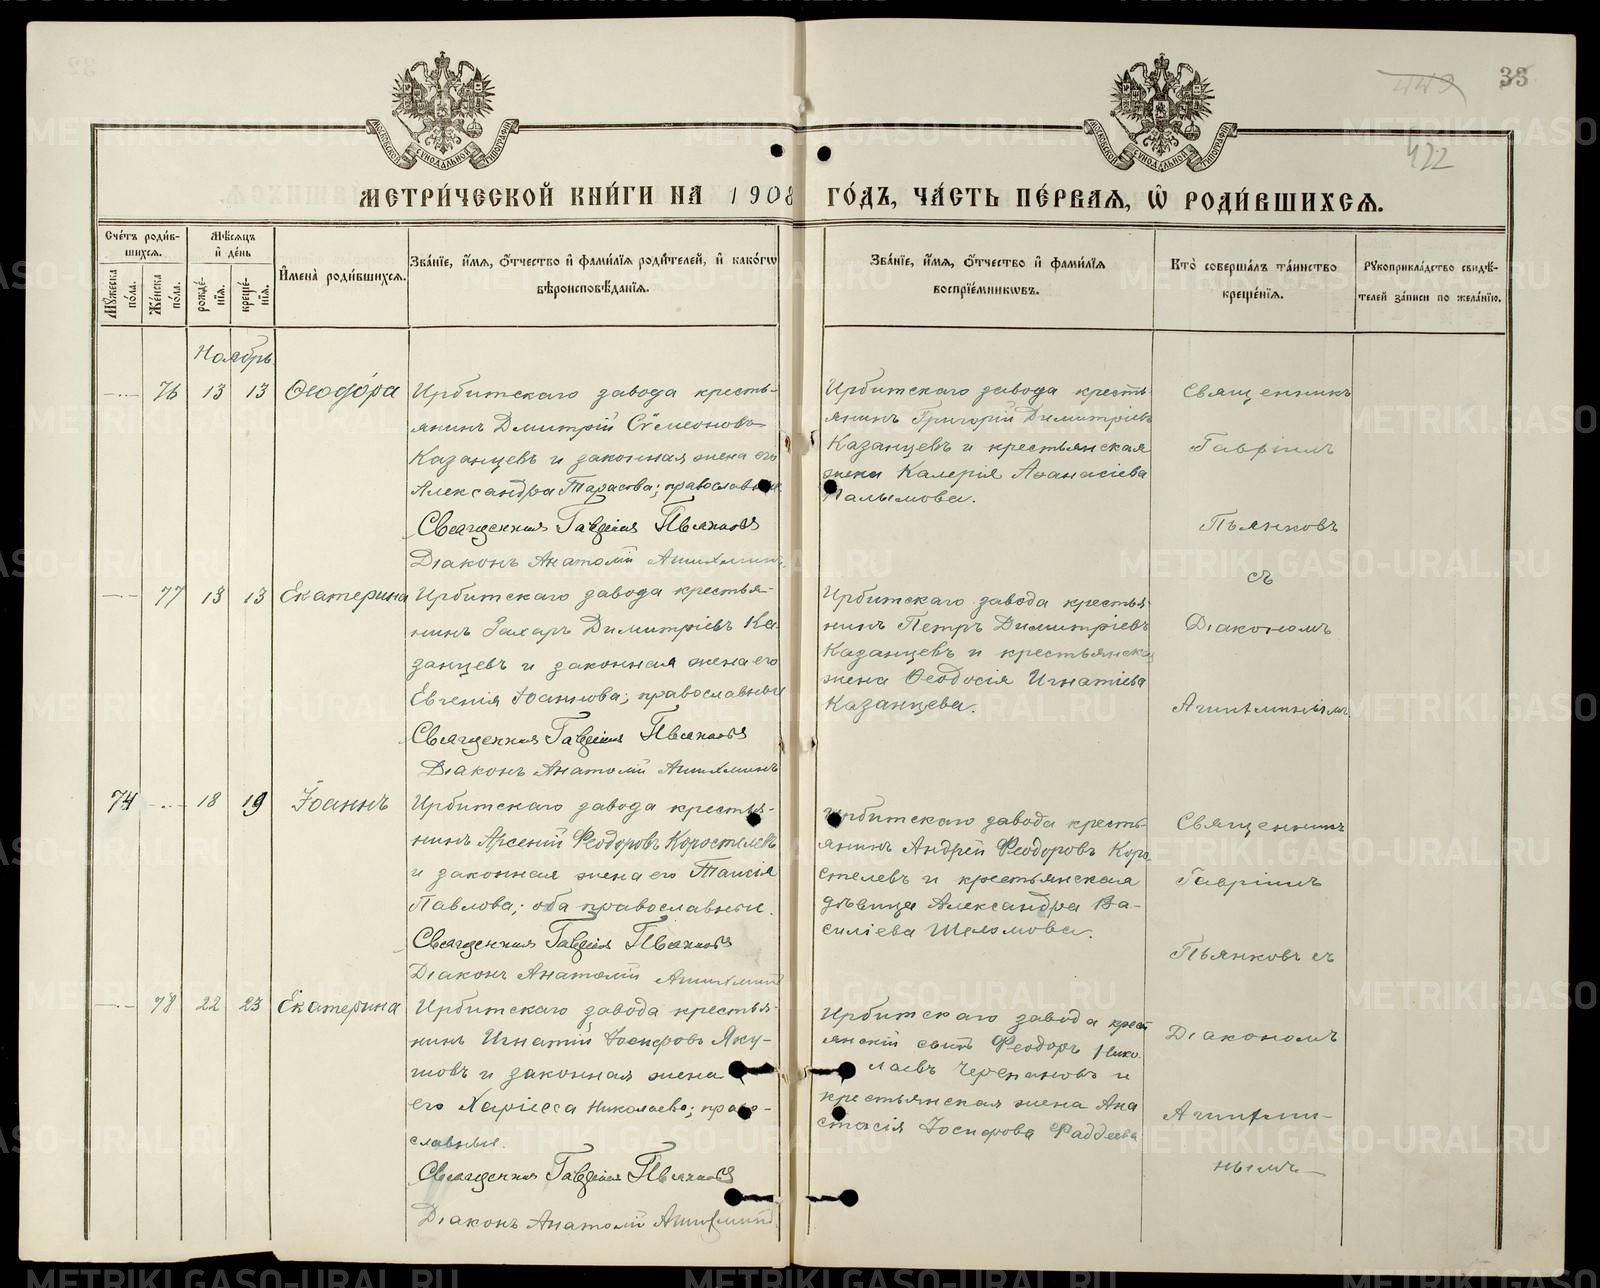 33
422
МОСКОВСКОЙ СѴНОДАЛЬНОЙ ТИПОГРАФІИ
МОСКОВСКОЙ СѴНОДАЛЬНОЙ ТИПОГРАФІИ
МЕТРИ́ЧЕСКОЙ КНИ́ГИ НА 1908 ГО́ДЪ, ЧА́СТЬ ПЕ́РВАЯ, Ѡ҆ РОДИ́ВШИХСЯ.
Сче́тъ роди́в-
шихся.
Мѣ́сяцъ
и҆ де́нь
И҆мена̀ роди́вшихся.
Зва́нїе, и҆́мя, ѻ҆́тчество и҆ фами́лїя роди́телей, и҆ како́гѡ
вѣроисповѣ́данїя.
Зва́нїе, и҆́мя, ѻ҆́тчество и҆ фами́лїя
воспрїе́мникѡвъ.
Кто̀ соверша́лъ та́инство
креще́нїя.
Рукоприкла́дство свидѣ́-
телей за́писи по жела́нїю.
Му́жеска по́ла.
Же́нска по́ла.
рожде́-нїя.
креще́-нїя.
Ноябрь
76 13 13 Ѳеодо́ра
Ирбитскаго завода кресть-
янинъ Дмитрій Сѵмеоновъ
Казанцевъ и законная жена его
Александра Тарасова; православные
Священникъ Гавріилъ Пьянковъ
Діаконъ Анатолій Агихминъ
Ирбитскаго завода кресть-
янинъ Григорій Димитріевъ
Казанцевъ и крестьянская
жена Калерія Аѳанасіева
Палымова.
Священникъ
Гавріилъ
Пьянковъ
съ
Діакономъ
77 13 13 Екатерина
Ирбитскаго завода крестья-
нинъ Захаръ Димитріевъ Ка-
занцевъ и законная жена его
Евгенія Іоаннова; православные
Священникъ Гавріилъ Пьянковъ
Діаконъ Анатолій
Ирбитскаго завода крестья-
нинъ Петръ Димитріевъ
Казанцевъ и крестьянская
жена Ѳеодосія Игнатіева
Казанцева.
74 18 19 Іоаннъ
Ирбитскаго завода крестья-
нинъ Арсеній Ѳеодоровъ Коростелевъ
и законная жена его Таисія
Павлова; оба православные.
Священникъ Гавріилъ Пьянковъ
Діаконъ Анатолій
Ирбитскаго завода кресть-
янинъ Андрей Ѳеодоровъ Коро-
стелевъ и крестьянская
дѣвица Александра Ва-
силіева Шеломова.
Священникъ
Гавріилъ
Пьянковъ съ
Діакономъ
78 22 23 Екатерина
Ирбитскаго завода крестья-
нинъ Игнатій Іосифовъ Яку-
шовъ и законная жена
его Хариесса Николаева; право-
славные.
Священникъ Гавріилъ Пьянковъ
Діаконъ Анатолій
Ирбитскаго завода крест
янскій сынъ Ѳеодоръ Нико
лаевъ Черепановъ и
крестьянская жена Ана
стасія Іосифова Фаддеева
METRIKI.GASO-URAL.RU